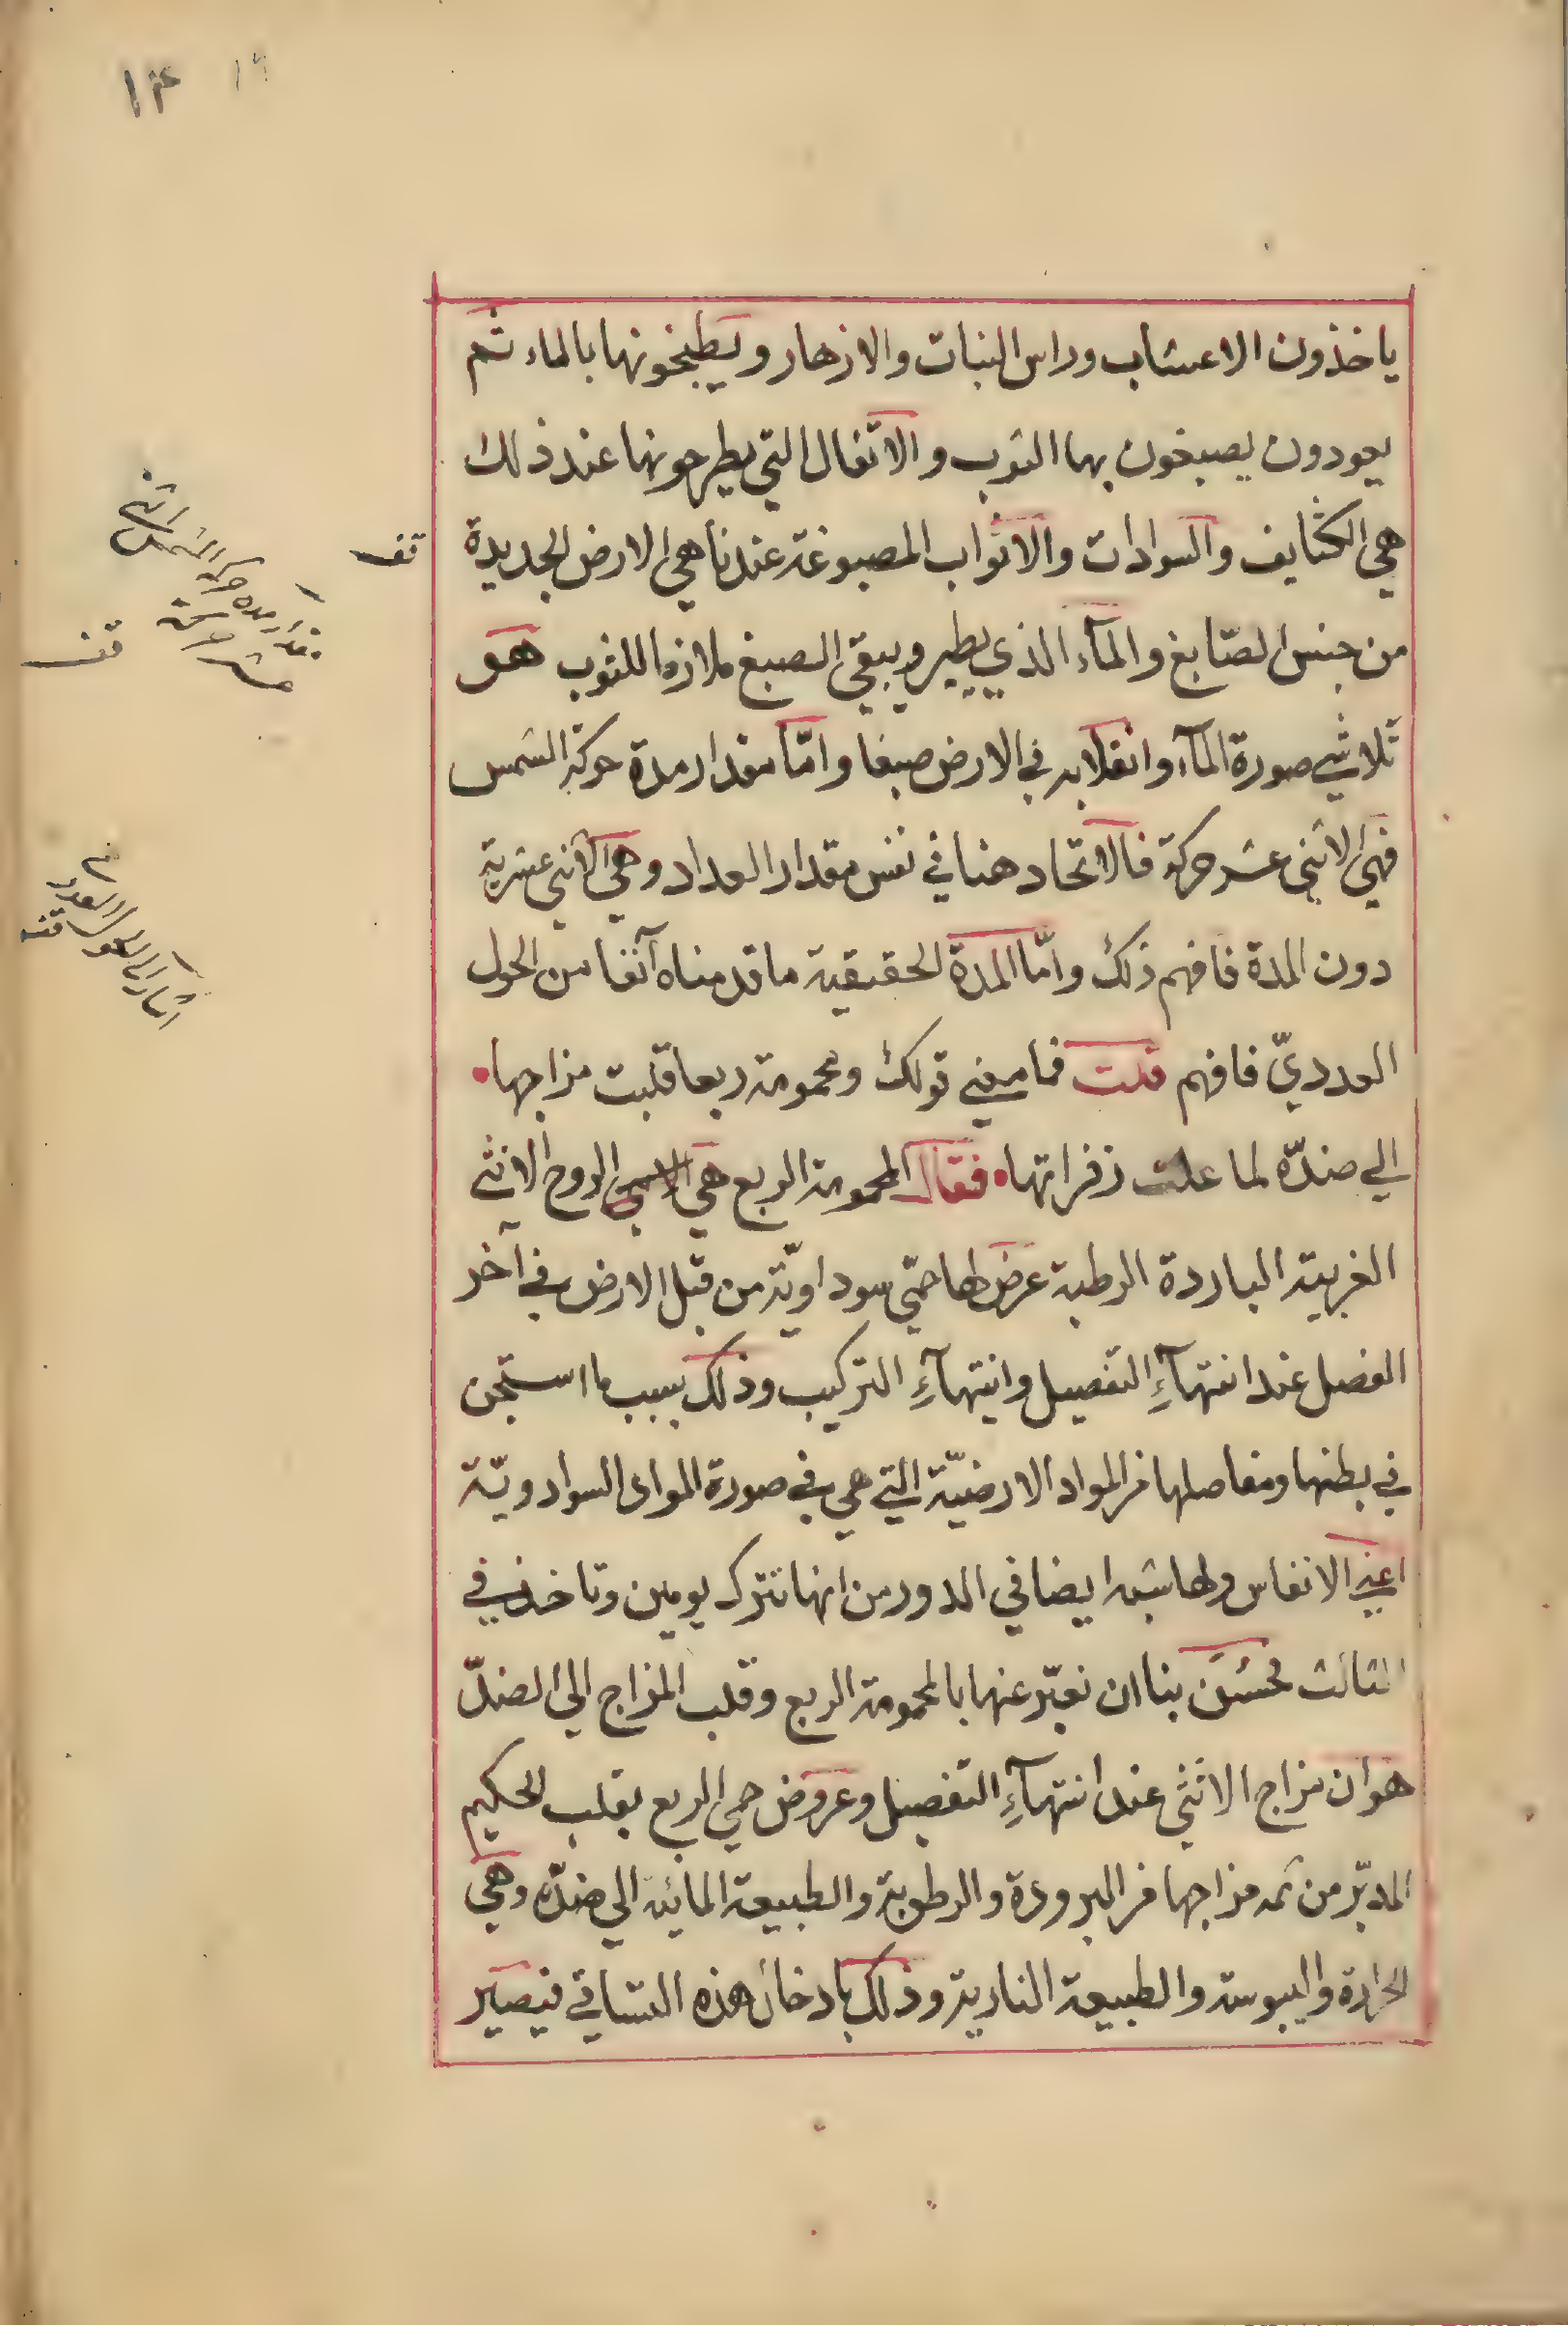 ١٤ ١٦
ياخذون الاعشاب وراس النبات والازهار ويطبخونها بالماء ثم
يعودون يصبغون بها الثوب والاثفال التي يطرحونها عند ذلك
هي الكثايف والسوادات والاثواب المصبوغة عندنا هي الارض الجديدة
من جنس الصّابغ والمآء الذي يطير ويبقي الصبغ ملازما للثوب هو
تلاشي صورة المآء وانقلابه في الارض صبغا وامّا مقدار مدة حركة الشمس
فهي الاثني عشر حركة فالاتحاد هنا في نفس مقدار العداد وهي الاثني عشرية
دون المدة فافهم ذلك وامّا المدة الحقيقية ما قدمناه آنفا من الحول
العدديّ فافهم قلت فما معني قولك ومحمومة ربعا قلبت مزاجها
الي ضدّه لما علت زفراتها فقال المحمومة الربع هي الروح الانثي
الغربية الباردة الرطبة عرض لها حمّي سوداويّة من قبل الارض في آخر
الفصل عند انتهآءِ التفصيل وانتهآءِ التركيب وذلك بسبب ما استجن
في بطنها ومفاصلها من المواد الارضيّة التي هي في صورة المواد السوادويّة
اعني الانفاس ولها شبه ايضا في الدور من انها تترك يومين وتاخذ في
الثالث فحسُنَ بنا ان نعبّر عنها بالمحمومة الربع وقلب المزاج الي الضدّ
هو ان مزاج الانثي عند انتهآءِ التفصيل وعروض حمي الربع بقلب الحكيم
المدبّر من ثمه مزاجها من البرودة والرطوبة والطبيعة المائية الي ضدّه وهي
الحرارة واليبوسة والطبيعة النارية وذلك بادخال هذه التساقي فيصير
قف
مقدار مدة حركة الشمس اثني
عشر حركة
قف
اشارة الي الحول العددي
قف